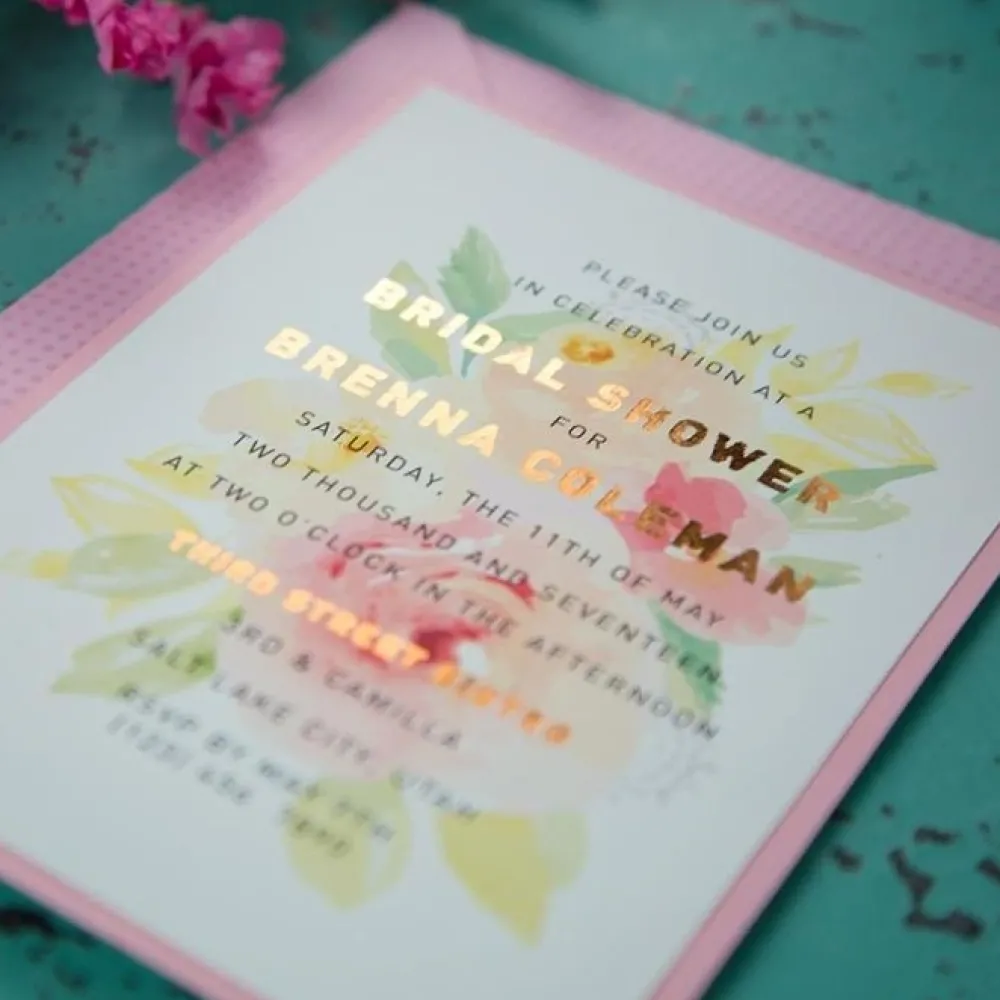 PLEASE JOIN US
IN CELEBRATION AT A
BRIDAL SHOWER
FOR
BRENNA COLEMAN
SATURDAY, THE 11TH OF MAY
TWO THOUSAND AND SEVENTEEN,
AT TWO O'CLOCK IN THE AFTERNOON
THIRD STREET BISTRO
3RD & CAMILLA
SALT LAKE CITY, UTAH
RSVP BY MAY